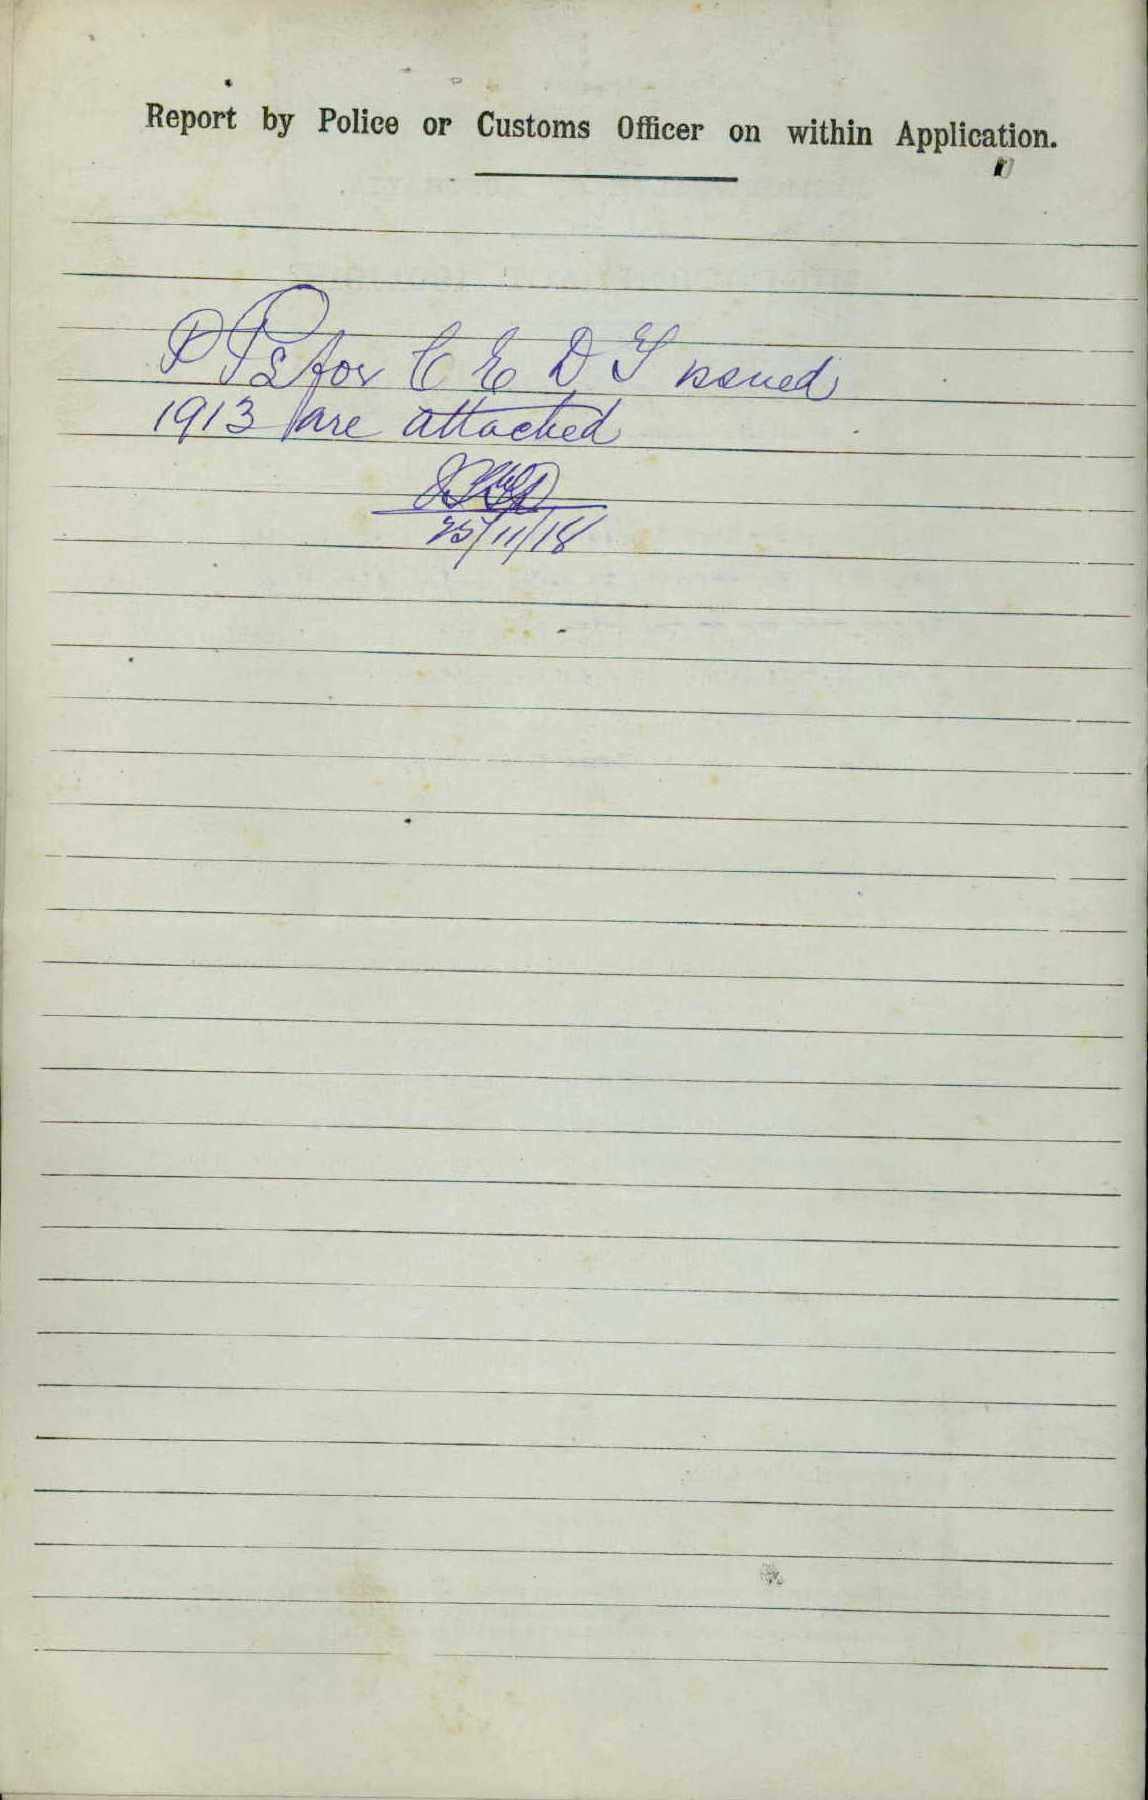 Report by Police or Customs Officer on within Application.
P Ps for C E D T issued
1913 are attached
25/11/18